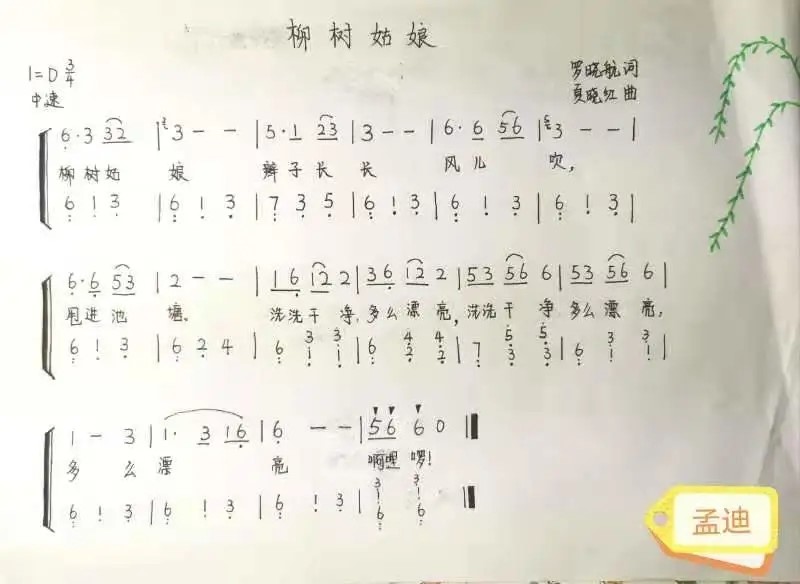 柳树姑娘
1=D 3/4
罗晓航 词
中速
夏晓红 曲
6·3 32 | 3 - - | 5·1 23 | 3 - - | 6·6 56 | 3 - - |
柳树姑 娘 辫子长 长 风儿 吹,
6 1 3 | 6 1 3 | 7 3 5 | 6 1 3 | 6 1 3 | 6 1 3 |
6·6 53 | 2 - - | 16 12 2 | 36 12 2 | 53 56 6 | 53 56 6 |
甩进池 塘。 洗洗干 净,多么漂 亮,洗洗干 净,多么漂 亮,
6 1 3 | 6 2 4 |
1 - 3 | 1· 3 16 | 6 - - | 56 6 0 ||
多 么 漂 亮 啊哩 啰!
6 1 3 | 6 1 3 | 6 1 3 |
孟迪